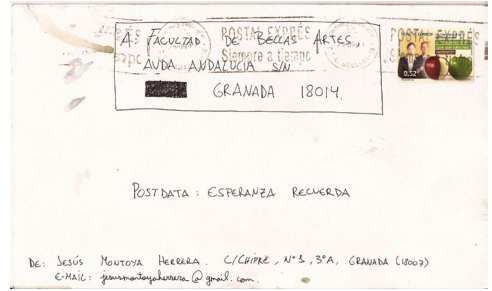 POSTAL EXPRÉS
Siempre a tiempo
POSTAL EXPRÉS
0,32€
A: FACULTAD DE BELLAS ARTES,
AVDA ANDALUCIA S/N
GRANADA 18014.
POSTDATA: ESPERANZA RECUERDA
DE: JESÚS MONTOYA HERRERA. C/CHIPRE, Nº1, 3ºA, GRANADA (18007)
E-MAIL: jesusmontoyaherrera@gmail.com.